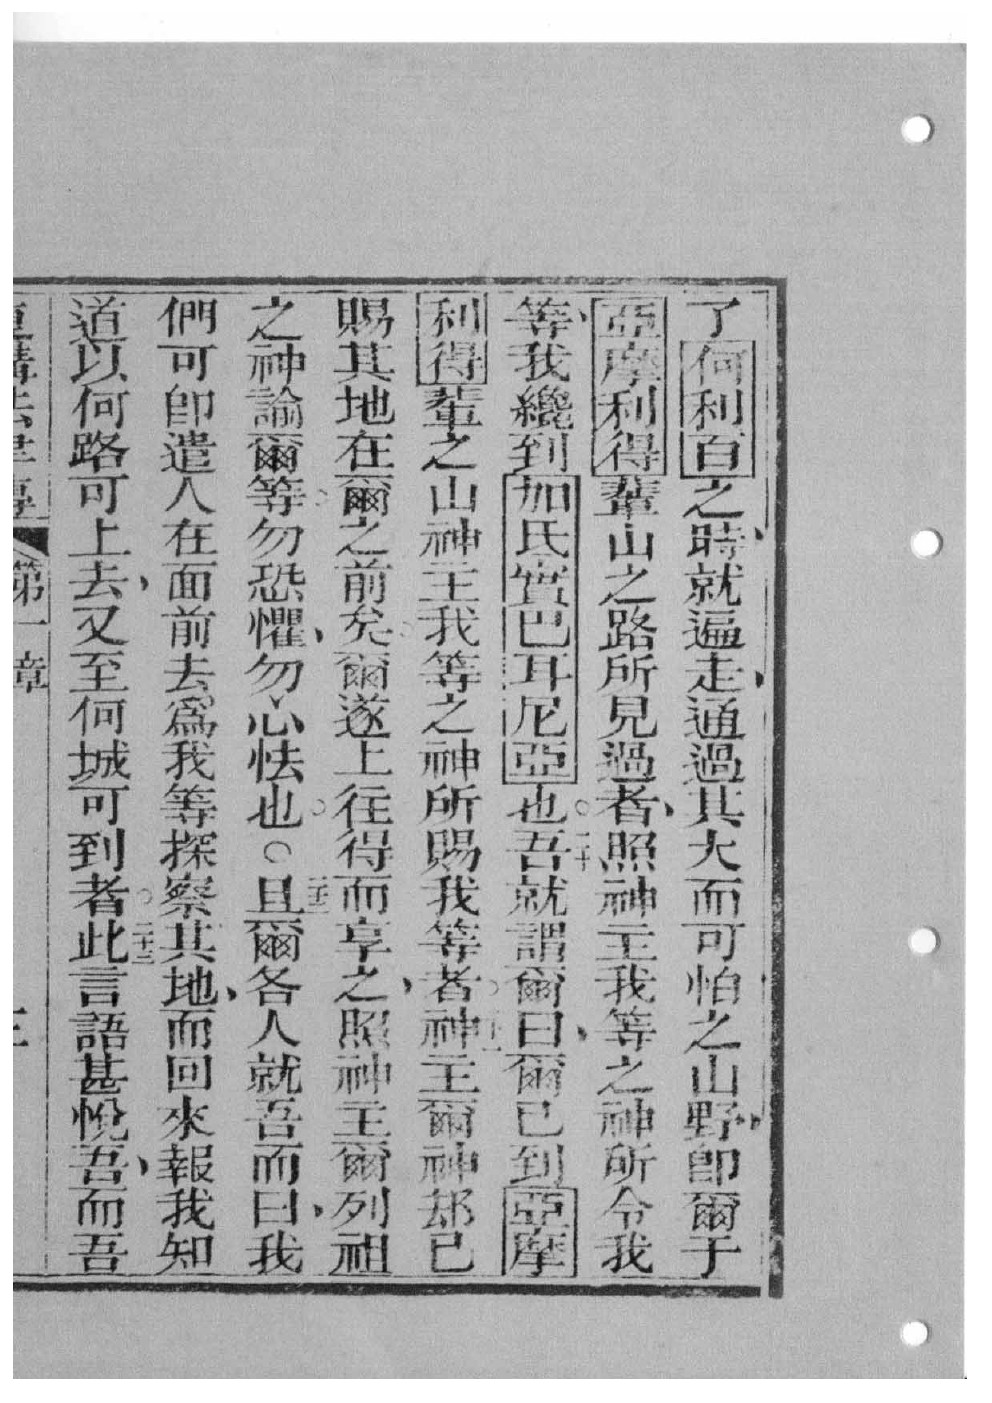 了何利百之時、就遍走、通過其大而可怕之山野、卽爾于
亞摩利得輩山之路所見過者、照神主我等之神所令我
等、我纔到加氏實巴耳尼亞也。二十吾就謂爾曰、爾已到亞摩
利得輩之山神主我等之神所賜我等者。二十一神主爾神却已
賜其地在爾之前矣。爾遂上往得而享之、照神主爾列祖
之神諭爾等。勿恐懼、勿心怯也。○二十二且爾各人就吾而曰、我
們可卽遣人在面前去、爲我等探察其地、而回來報我知
道以何路可上去、又至何城可到者。二十三此言語甚悅吾、而吾
重講法律傳 第一章 三